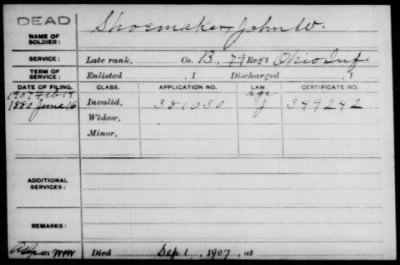 DEAD
NAME OF SOLDIER: Shoemaker, John W.
SERVICE: Late rank, Co. B, 79 Regt Ohio Inf
TERM OF SERVICE: Enlisted , 1 Discharged , 1
DATE OF FILING. CLASS. APPLICATION NO. LAW. CERTIFICATE NO.
1907 Feb
1880 June 16 Invalid, 381030 J 349242
Widow,
Minor,
ADDITIONAL SERVICES:
REMARKS:
Died Sep 1, 1907, at